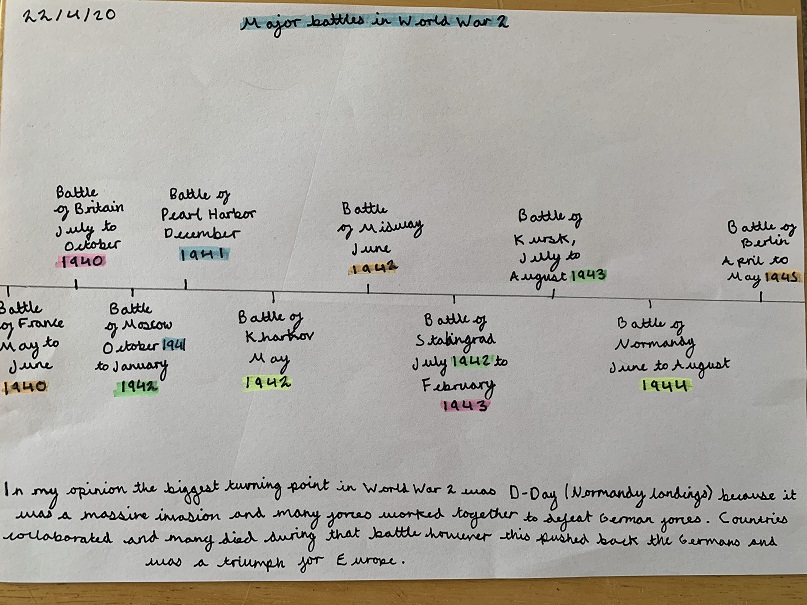 22/4/20
Major battles in World War 2
Battle
of Britain
July to
October
1940
Battle of
Pearl Harbor
December
1941
Battle
of Midway
June
1942
Battle of
Kursk,
July to
August 1943
Battle of
Berlin
April to
May 1945
Battle
of France
May to
June
1940
Battle
of Moscow
October 1941
to January
1942
Battle of
Kharkov
May
1942
Battle of
Stalingrad
July 1942 to
February
1943
Battle of
Normandy
June to August
1944
In my opinion the biggest turning point in World War 2 was D-Day (Normandy landings) because it
was a massive invasion and many forces worked together to defeat German forces. Countries
collaborated and many died during that battle however this pushed back the Germans and
was a triumph for Europe.